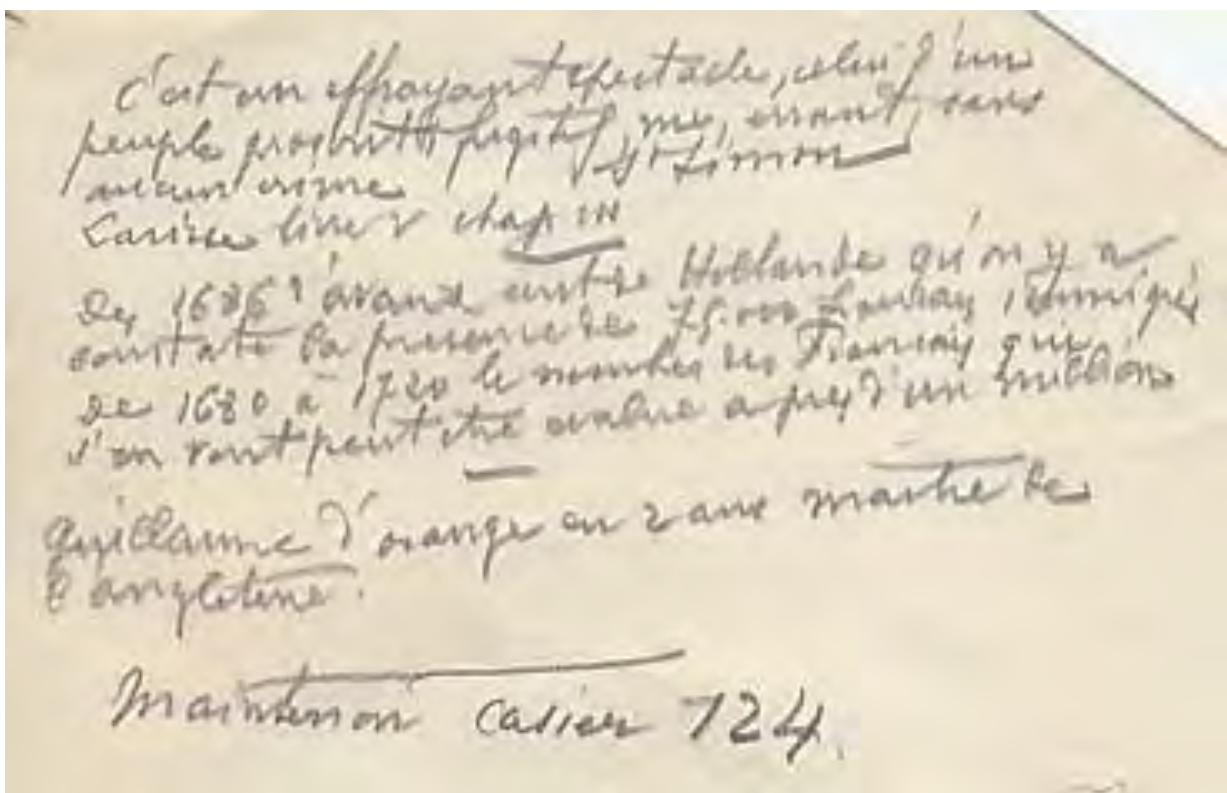 C'est un effrayant spectacle, celui d'un
peuple proscrit fugitif, nu, errant, sans
aucun crime St Simon
livre V chap III
Des 1686 d'avaux Hollande qu'on y a
constaté la presence de 75.000
de 1680 à 1720 le nombre des Français qui
s'en vont peut être evalué a pres d'un million
Guillaume d'orange en 2 ans maitre de
l'angleterre.
Maintenon Casier 124.